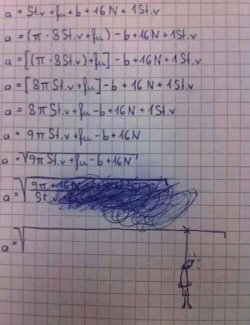 a = St.v + fµ + b + 16N + 1St.v
a = (π · 8St.v + fµ) - b + 16N + 1St.v
a = [(π · 8St.v) + fµ] - b + 16N + 1St.v
a = [8πSt.v + fµ] - b + 16N + 1St.v
a = 8πSt.v + fµ - b + 16N + 1St.v
a = 9πSt.v + fµ - b + 16N
a = √9πSt.v + fµ - b + 16N
a = √9π + 16N
St.
a = √